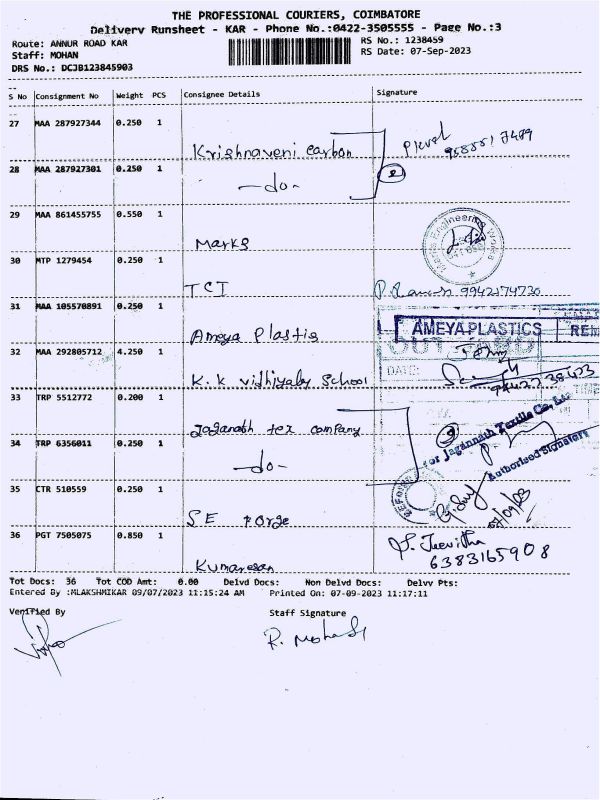 THE PROFESSIONAL COURIERS, COIMBATORE
Delivery Runsheet - KAR - Phone No.:0422-3505555 - Page No.:3
Route: ANNUR ROAD KAR RS No.: 1238459
Staff: MOHAN RS Date: 07-Sep-2023
DRS No.: DCJB123845903
S No Consignment No Weight PCS Consignee Details Signature
27 MAA 287927344 0.250 1 Krishnaveni Carbon
28 MAA 287927301 0.250 1 -do- 2
29 MAA 861455755 0.550 1 Marks
30 MTP 1279454 0.250 1 TCI 9942174730
31 MAA 105570891 0.250 1 Ameya Plastis AMEYA PLASTICS
DATE:
32 MAA 292805712 4.250 1 K.K vidhiyalay School
33 TRP 5512772 0.200 1 Jaganath tex company
for Jagannath Textile Co.,
34 TRP 6356011 0.250 1 -do- Authorised Signatory
35 CTR 510559 0.250 1 S.E Forge 07/09/03
36 PGT 7505075 0.850 1 Kumaresan J. Jeevitha
6383165908
Tot Docs: 36 Tot COD Amt: 0.00 Delvd Docs: Non Delvd Docs: Delvy Pts:
Entered By :MLAKSHMIKAR 09/07/2023 11:15:24 AM Printed On: 07-09-2023 11:17:11
Verified By Staff Signature
R. Mohan